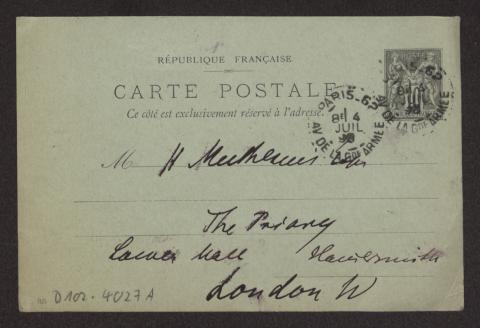 RÉPUBLIQUE FRANÇAISE
CARTE POSTALE
Ce côté est exclusivement réservé à l'adresse.
PARIS-62
8E 4
JUIL
AV DE LA Gde ARMÉE
M H Muthesius Esqr
The Priory
Lower Mall Hammersmith
London W
D102-4027A